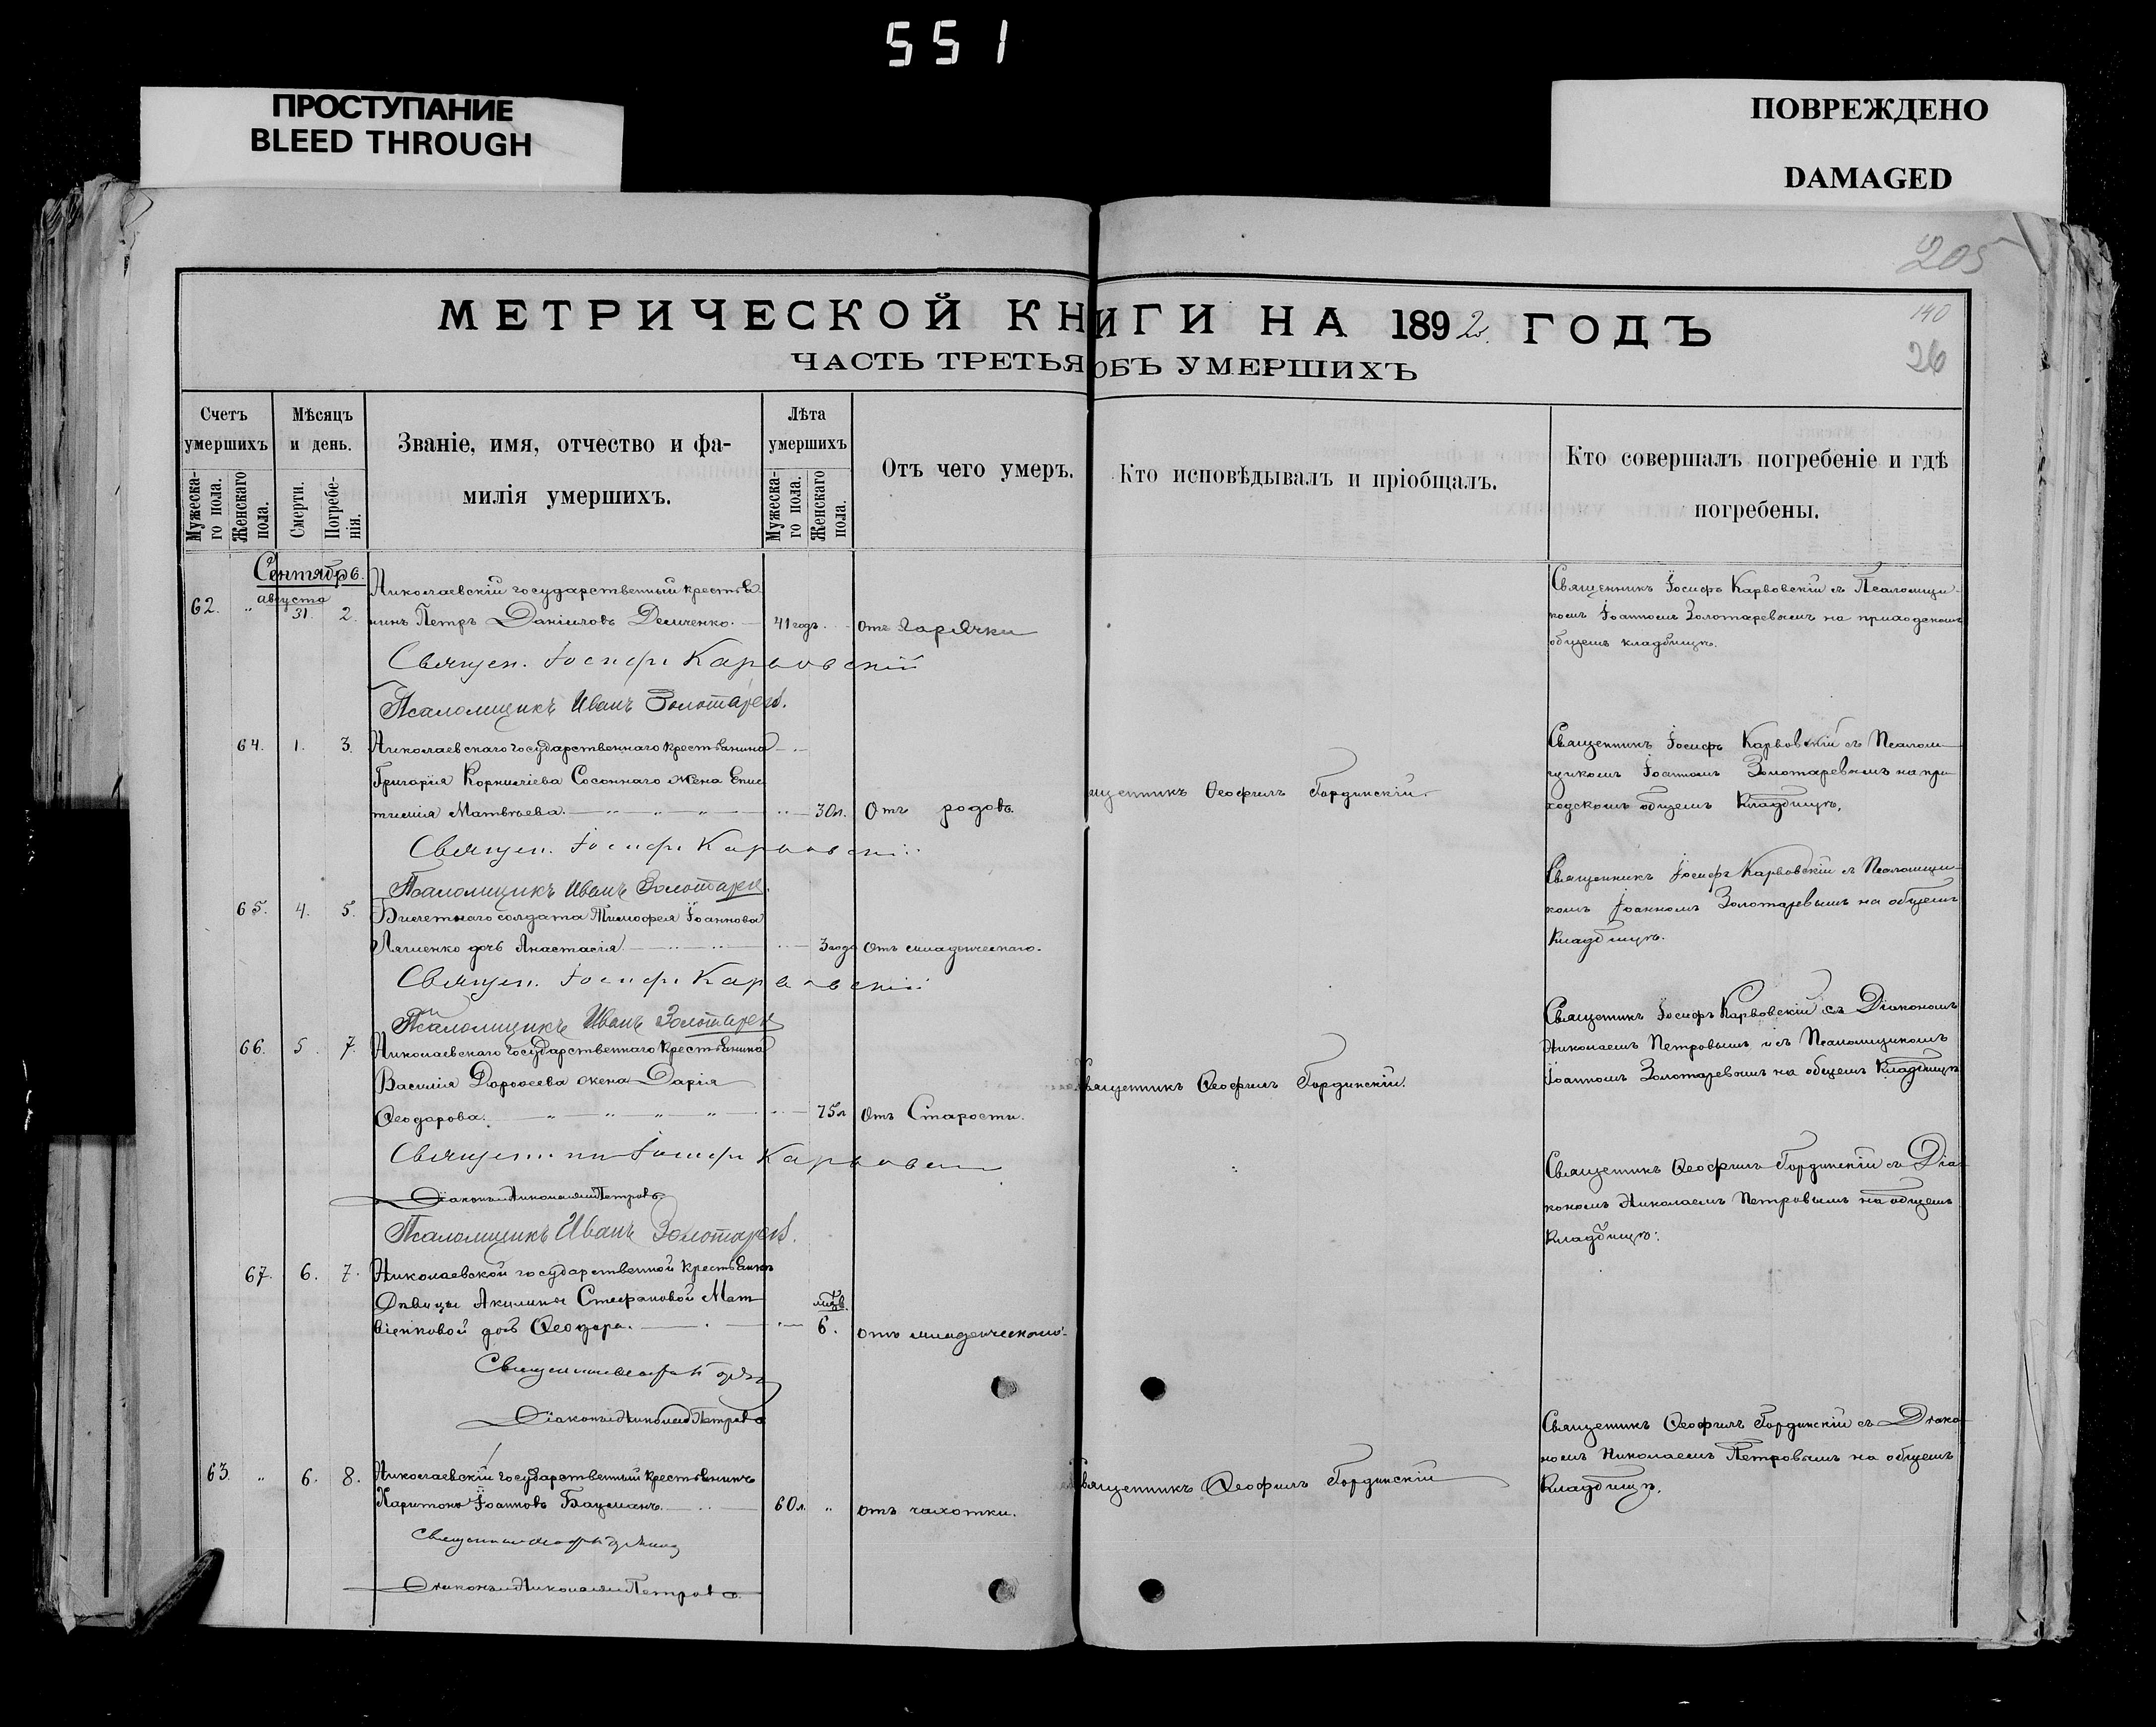 551
ПРОСТУПАНИЕ
BLEED THROUGH
ПОВРЕЖДЕНО
DAMAGED
205
140
26
МЕТРИЧЕСКОЙ КНИГИ НА 1892 ГОДЪ
ЧАСТЬ ТРЕТЬЯ ОБЪ УМЕРШИХЪ
Счетъ умершихъ
Мужескаго пола.
Женскаго пола.
Мѣсяцъ и день.
Смерти.
Погребенія.
Званіе, имя, отчество и фамилія умершихъ.
Лѣта умершихъ
Мужескаго пола.
Женскаго пола.
Отъ чего умеръ.
Кто исповѣдывалъ и пріобщалъ.
Кто совершалъ погребеніе и гдѣ погребены.
Сентябрь.
августа
62. " 31. 2. Николаевскій государственный крестья
нинъ Петръ Даніиловъ Демченко. 41 годъ. Отъ горячки
Священникъ Іосифъ Карвовскій съ Псаломщи-
комъ Іоанномъ Золотаревымъ на приходскомъ
общемъ кладбищѣ.
Священ. Іосифъ Карвовскій
Псаломщикъ Иванъ Золотаревъ.
64. 1. 3. Николаевскаго государственнаго крестьянина
Григорія Корнилиева Сосоннаго жена Епис
тимія Матвѣева. 30 л. Отъ родовъ.
щенникъ Ѳеофилъ Гординскій.
Священникъ Іосифъ Карвовскій съ Псалом-
щикомъ Іоанномъ Золотаревымъ на при-
ходскомъ общемъ Кладбищѣ.
Священ. Іосифъ Карвовскій
Псаломщикъ Иванъ Золотаревъ.
65. 4. 5. Билетнаго солдата Тимофея Іоаннова
Ляшенко дочь Анастасія. 3 года Отъ младенческаго.
Священникъ Іосифъ Карвовскій съ Псаломщи-
комъ Іоанномъ Золотаревымъ на общемъ
Кладбищѣ.
Священ. Іосифъ Карвовскій
Псаломщикъ Иванъ Золотаревъ
66. 5. 7. Николаевскаго Государственнаго Крестьянина
Василія Дороѳеева жена Дарія
Ѳеодорова. 75 л Отъ Старости.
Священникъ Ѳеофилъ Гординскій.
Священникъ Іосифъ Карвовскій съ Діакономъ
Николаемъ Петровымъ и съ Псаломщикомъ
Іоанномъ Золотаревымъ на общемъ Кладбищѣ
Священникъ Іосифъ Карвовскій
Діаконъ Николай Петровъ.
Псаломщикъ Иванъ Золотаревъ.
67. 6. 7. Николаевской государственной крестьянки
Дѣвицы Акилины Стефановой Мат
віенковой дочь Ѳеодора. 6. отъ младенческаго.
Священникъ Ѳеофилъ Гординскій съ Діа-
кономъ Николаемъ Петровымъ на общемъ
Кладбищѣ.
Діаконъ Николай Петровъ
63. " 6. 8. Николаевскій государственный крестьянинъ
Харитонъ Іоанновъ Бацманъ. 60 л. " отъ чахотки.
Священникъ Ѳеофилъ Гординскій
Священникъ Ѳеофилъ Гординскій съ Діако-
номъ Николаемъ Петровымъ на общемъ
Кладбищѣ.
Діаконъ Николай Петровъ.